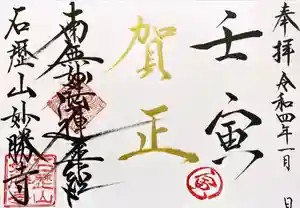 奉拝 令和四年一月 日
壬寅
賀正
南無妙法蓮華経
石歴山妙勝寺